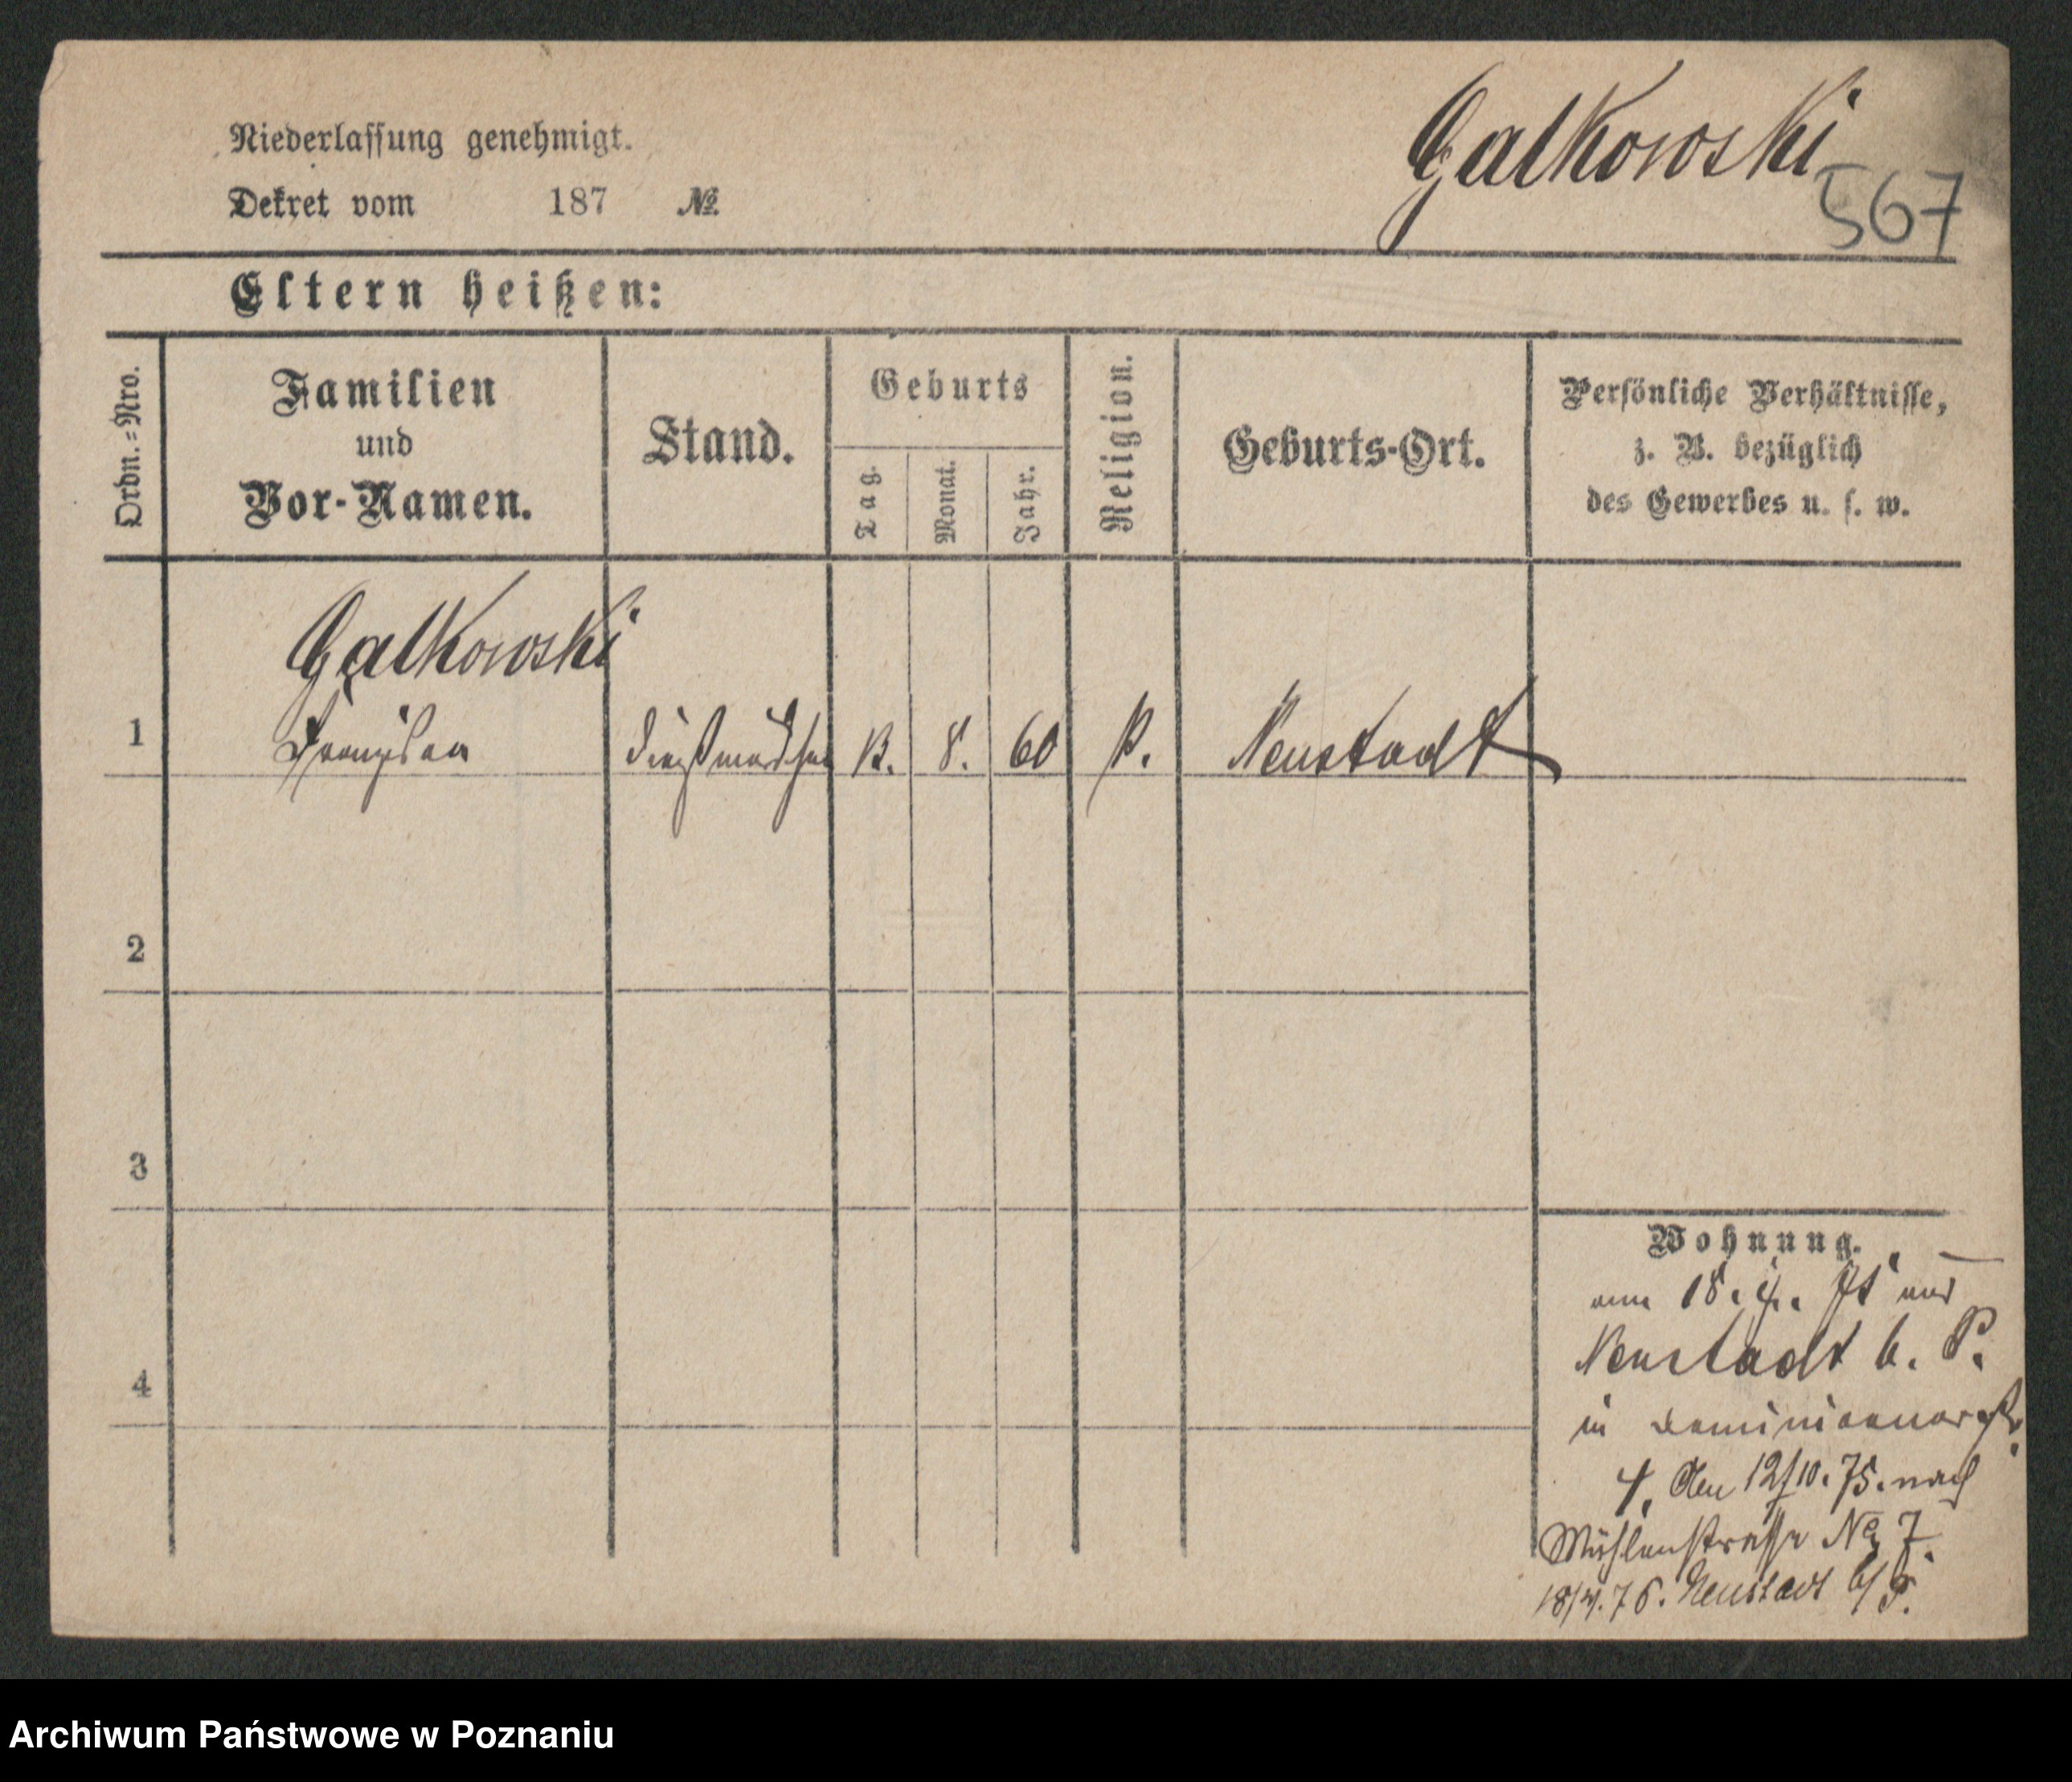 Niederlassung genehmigt.
Dekret vom 187 №
Galkowski
567
Eltern heißen:
Ordn.=Nro.
Familien
und
Vor-Namen.
Stand.
Geburts
Tag.
Monat.
Jahr.
Religion.
Geburts-Ort.
Persönliche Verhältnisse,
z. B. bezüglich
des Gewerbes u. s. w.
Galkowski
1 Dienstmädchen 8. 60 Neustadt
2
3
4
Wohnung.
18. 4. aus
Neustadt b. P.
in
4. Den 12/10. 75. nach
Mühlenstrasse № 7.
Neustadt b/P.
Archiwum Państwowe w Poznaniu